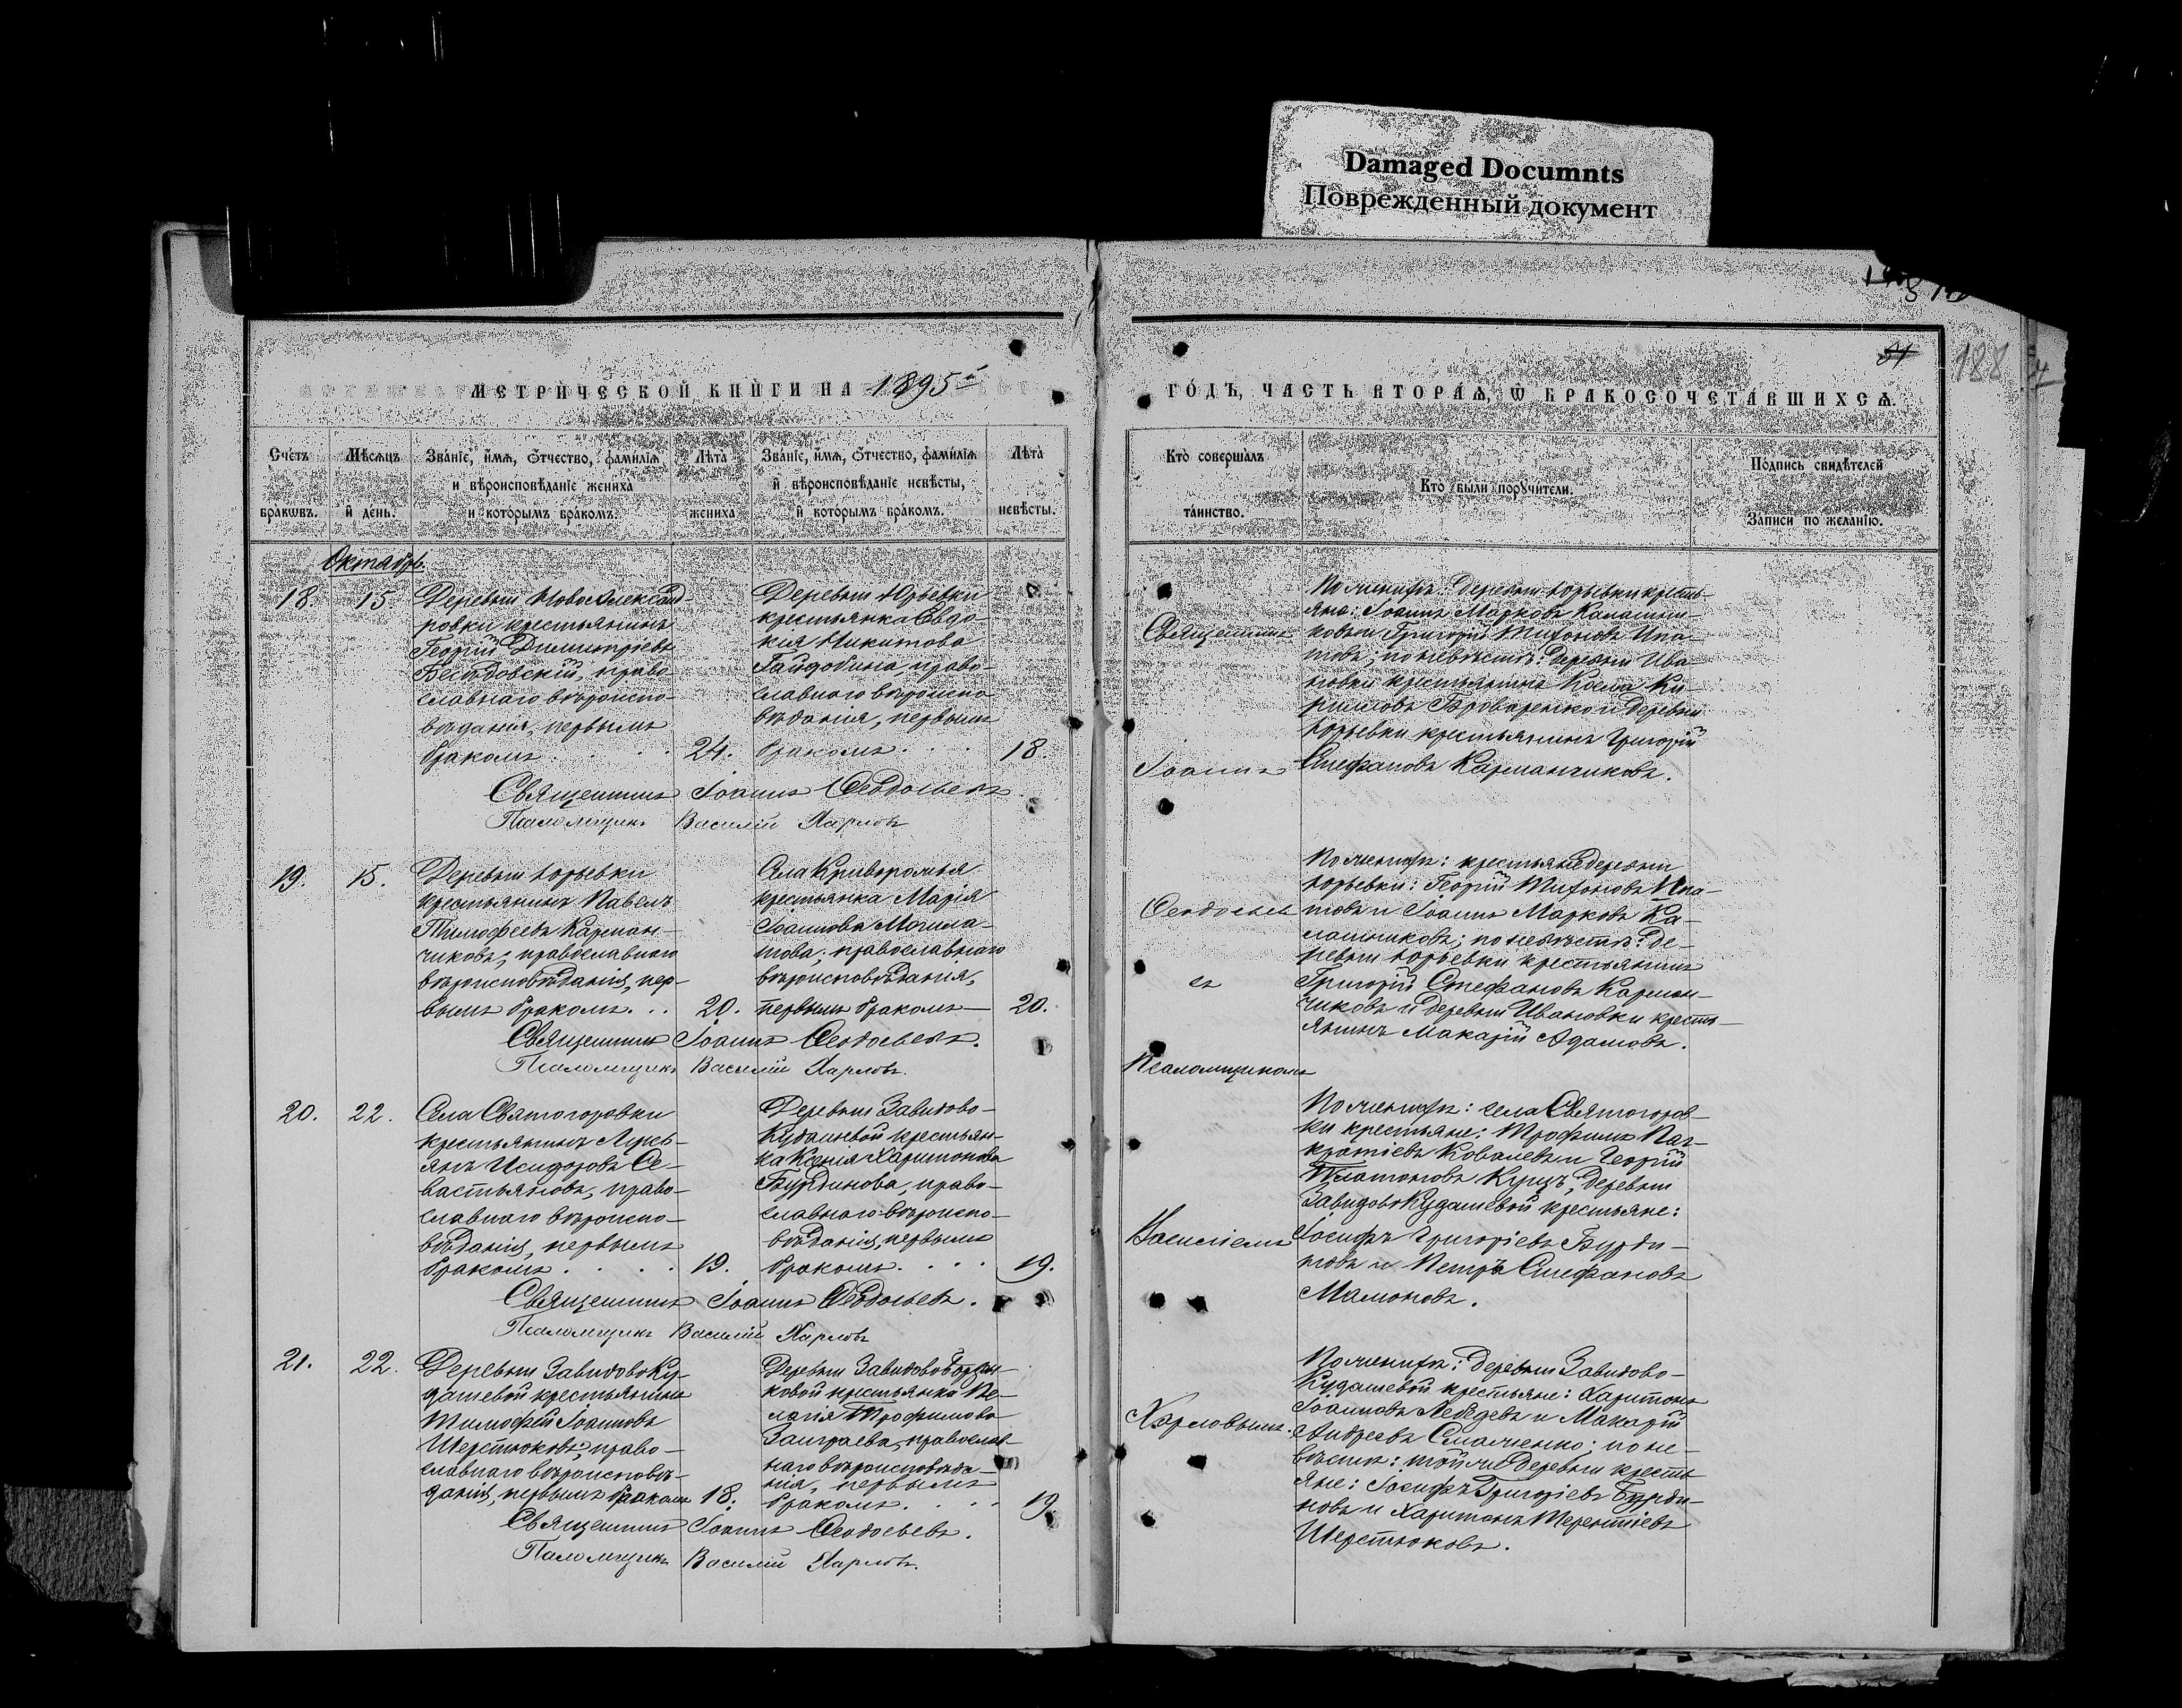 Damaged Documnts
Поврежденный документ
188
МЕТРИЧЕСКОЙ КНИГИ НА 1895й
ГОДЪ, ЧАСТЬ ВТОРАѦ, Ѡ БРАКОСОЧЕТАВШИХСѦ.
Счетъ браковъ.
Мѣсѧцъ и день.
Званіе, имѧ, ѿчество, фамиліѧ и вѣроисповѣданіе жениха и которымъ бракомъ.
Лѣта жениха
Званіе, имѧ, ѿчество, фамиліѧ и вѣроисповѣданіе невѣсты, и которымъ бракомъ.
Лѣта невѣсты.
Кто совершалъ таинство.
Кто были поручители.
Подпись свидѣтелей записи по желанію.
Октябрь.
18. 15.
Деревни Новоалександ-
ровки крестьянинъ
Георгій Димитріевъ
Бесѣдовскій, право-
славнаго вѣроиспо-
вѣданія, первымъ
бракомъ. 24.
Деревни Юрьевки
крестьянка Евдо-
кия Никитова
Гайдобина, право-
славнаго вѣроиспо-
вѣданія, первымъ
бракомъ. 18.
Священникъ Іоаннъ Ѳеодосьевъ
Псаломщикъ Василій Харловъ
По женихѣ: деревни Юрьевки кресть-
яне: Іоаннъ Марковъ Калашни-
ковъ и Григорій Тихоновъ Ипа-
товъ; по невѣстѣ: деревни Ива-
новки крестьянинъ Косма Ки-
рилловъ Броваренко и деревни
Юрьевки крестьянинъ Григорій
Стефановъ Карманчиковъ.
19. 15.
Деревни Юрьевки
крестьянинъ Павелъ
Тимофеевъ Карман-
чиковъ, православнаго
вѣроисповѣданія, пер-
вымъ бракомъ. 20.
Села Криворожья
крестьянка Марія
Іоаннова Могила-
това, православнаго
вѣроисповѣдания,
первымъ бракомъ 20.
Священникъ Іоаннъ Ѳеодосьевъ.
Псаломщикъ Василій Харловъ.
По женихѣ: крестьяне деревни
Юрьевки: Георгій Тихоновъ Ипа-
товъ и Іоаннъ Марковъ Ка-
лашниковъ; по невѣстѣ: де-
ревни Юрьевки крестьянинъ
Григорій Стефановъ Карман-
чиковъ и деревни Ивановки кресть-
янинъ Макарій Адамовъ.
20. 22.
Села Святогоровки
крестьянинъ Лукь-
янъ Исидоровъ Се-
вастьяновъ, право-
славнаго вѣроиспо-
вѣданія, первымъ
бракомъ. 19.
Деревни Завидово-
Кудашевой крестьян-
ка Ксенія Харитонова
Бурдинова, право-
славнаго вѣроиспо-
вѣданія, первымъ
бракомъ. 19.
Священникъ Іоаннъ Ѳеодосьевъ.
Псаломщикъ Василій Харловъ
По женихѣ: села Святогоров-
ки крестьяне: Трофимъ Пан-
кратіевъ Ковалевъ и Георгій
Платоновъ Куцъ, деревни
Завидово Кудашевой крестьяне:
Іосифъ Григоріевъ Бурди-
новъ и Петръ Стефановъ
Мамоновъ.
21. 22.
Деревни Завидово Ку-
дашевой крестьянинъ
Тимофей Іоанновъ
Шерстюковъ, право-
славнаго вѣроисповѣ-
данія, первымъ бракомъ 18.
Деревни Завидово
ковой крестьянка Пе-
лагія Трофимова
Заиграева, православ-
наго вѣроисповѣда-
нія, первымъ
бракомъ. 19.
Священникъ Іоаннъ Ѳеодосьевъ.
Псаломщикъ Василій Харловъ.
По женихѣ: деревни Завидово-
Кудашевой крестьяне: Харитонъ
Іоанновъ Лебедевъ и Макарій
Андреевъ Смаженко; по не-
вѣстѣ: той же деревни кресть-
яне: Іосифъ Григоріевъ Бурди-
новъ и Харитонъ Терентіевъ
Шерстюковъ.
Священникъ
Іоаннъ
Ѳеодосьевъ
съ
Псаломщикомъ
Василіемъ
Харловымъ.